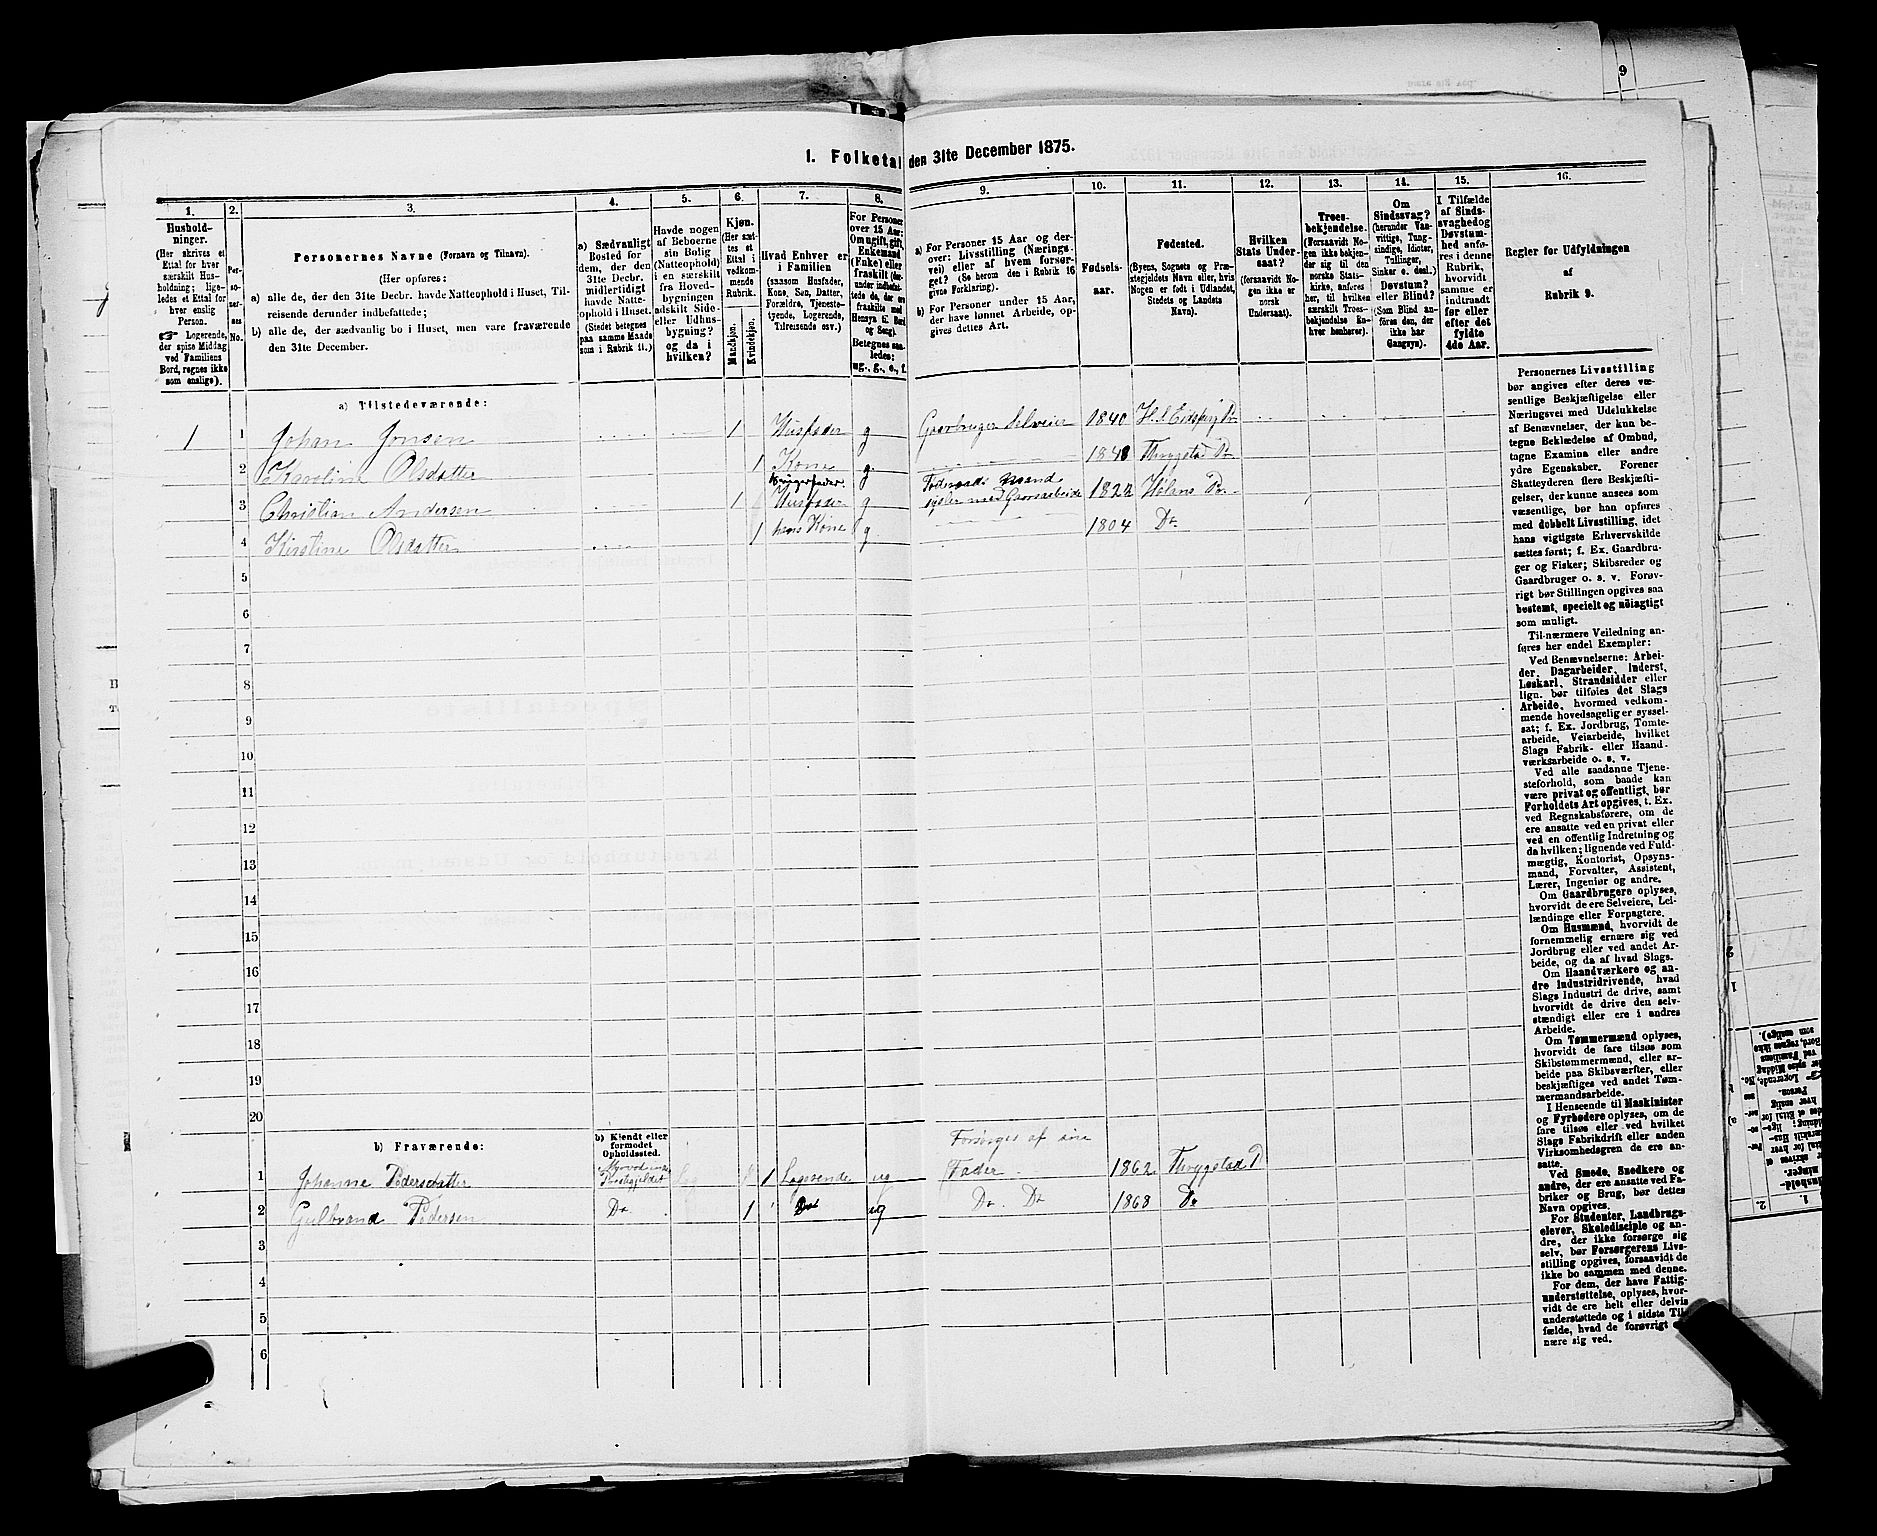 I. Folketal den 31te December 1875.
1. 2. 3. 4. 5. 6. 7. 8. 9. 10. 11. 12. 13. 14. 15. 16.
Hushold-
ninger.
(Her skrives et
Ettal for hver
særskilt Hus-
holdning; lige-
ledes et Ettal for
hver enslig
Person.
☞ Logerende,
der spise Middag
ved Familiens
Bord, regnes ikke
som enslige).
Per-
soner-
nes
No.
Personernes Navne (Fornavn og Tilnavn).
(Her opføres:
a) alle de, der den 31te Decbr. havde Natteophold i Huset, Til-
reisende derunder indbefattede;
b) alle de, der sædvanlig bo i Huset, men vare fraværende
den 31te December.
a) Sædvanligt
Bosted for
dem, der den
31te Decbr.
midlertidigt
havde Natte-
ophold i Huset.
(Stedet betegnes
paa samme Maade
som i Rubrik 11.)
Havde nogen
af Beboerne
sin Bolig
(Natteophold)
i en særskilt
fra Hoved-
bygningen
adskilt Side-
eller Udhus-
bygning?
og da i
hvilken?
Kjøn.
(Her sæt-
tes et
Ettal i
vedkom-
mende
Rubrik.
Mandkjøn.
Kvindekjøn.
Hvad Enhver er
i Familien
(saasom Husfader,
Kone, Søn, Datter,
Forældre, Tjeneste-
tyende, Logerende,
Tilreisende osv.)
For Personer
over 15 Aar:
Om ugift, gift,
Enkemand
(Enke) eller
fraskilt (der-
under indbefat-
tede de, der ere
fraskilte med
Hensyn til Bord
og Seng).
Betegnes saa-
ledes:
ug., g., e., f.
a) For Personer 15 Aar og der-
over: Livsstilling (Nærings-
vei) eller af hvem forsør-
get? (Se herom den i Rubrik 16
givne Forklaring).
b) For Personer under 15 Aar,
der have lønnet Arbeide, op-
gives dettes Art.
Fødsels-
aar.
Fødested.
(Byens, Sognets og Præ-
stegjeldets Navn eller, hvis
Nogen er født i Udlandet,
Stedets og Landets
Navn).
Hvilken
Stats Under-
saat?
(forsaavidt No-
gen ikke er
norsk
Undersaat).
Troes-
bekjendelse.
(Forsaavidt No-
gen ikke bekjen-
der sig til den
norske Stats-
kirke, anføres
her, til hvilken
særskilt Troes-
bekjendelse En-
hver henhører).
Om
Sindssvag?
(herunder Van-
vittige, Tung-
sindige, Idioter,
Tullinger,
Sinker o. desl.)
Døvstum?
eller Blind?
(Som Blind an-
føres den, der
ikke har
Gangsyn).
I Tilfælde
af Sinds-
svaghed og
Døvstum-
hed anfø-
res i denne
Rubrik,
hvorvidt
samme er
indtraadt
før eller
efter det
fyldte
4de Aar.
Regler for Udfyldningen
af
Rubrik 9.
a) Tilstedeværende:
1 1 Johan Jonsen 1 Husfader g Gaarbruger Selveier 1840 H.S. Eidsberg Pr
2 Karoline Olsdatter 1 Kone g. 1848 Thrygstad Pr
3 Christian Andersen 1 Husfader g sysler med Gaarsarbeide 1824 Hølans Pr.
4 Kirstine Olsdatter 1 hans Kone g 1804 Do
5
6
7
8
9
10
11
12
13
14
15
16
17
18
19
20
b) Fraværende:
b) Kjendt eller
formodet
Opholdssted.
Forsørges af sin
1 Johanne Pedersdatter Præstegjeldet 1 Logerende ug Fader 1862 Thrygstad P
2 Gulbrand Pedersen Do 1 Do ug Do Do 1868 Do
3
4
5
6
Personernes Livsstilling
bør angives efter deres væ-
sentlige Beskjæftigelse eller
Næringsvei med Udelukkelse
af Benævnelser, der kun be-
tegne Beklædelse af Ombud,
tagne Examina eller andre
ydre Egenskaber. Forener
Skatteyderen flere Beskjæfti-
gelser, der kunne ansees som
væsentlige, bør han opføres
med dobbelt Livsstilling, idet
hans vigtigste Erhvervskilde
sættes først; f. Ex. Gaardbru-
ger og Fisker; Skibsreder og
Gaardbruger o. s. v. Forøv-
rigt bør Stillingen opgives saa
bestemt, specielt og nöiagtigt
som muligt.
Til nærmere Veiledning an-
føres her endel Exempler:
Ved Benævnelserne: Arbei-
der, Dagarbeider, Inderst,
Løskarl, Strandsidder eller
lign. bør tilføies det Slags
Arbeide, hvormed vedkom-
mende hovedsagelig er syssel-
sat; f. Ex. Jordbrug, Tomte-
arbeide, Veiarbeide, hvilket
Slags Fabrik- eller Haand-
værksarbeide o. s. v.
Ved alle saadanne Tjene-
steforhold, som baade kan
være privat og offentligt, bør
Forholdets Art opgives, t. Ex.
ved Regnskabsførere, om de
ere ansatte ved en privat eller
ved en offentlig Indretning og
da hvilken; lignende ved Fuld-
mægtig, Kontorist, Opsyns-
mand, Forvalter, Assistent,
Lærer, Ingeniør og andre.
Om Gaardbrugere oplyses,
hvorvidt de ere Selveiere, Lei-
lændinge eller Forpagtere.
Om Husmænd, hvorvidt de
fornemmelig ernære sig ved
Jordbrug eller ved andet Ar-
beide, og da af hvad Slags.
Om Haandværkere og an-
dre Industridrivende, hvad
Slags Industri de drive, samt
hvorvidt de drive den selv-
stændigt eller ere i andres
Arbeide.
Om Tømmermænd oplyses,
hvorvidt de fare tilsøs som
Skibstømmermænd, eller ar-
beide paa Skibsværfter, eller
beskjæftiges ved andet Tøm-
mermandsarbeide.
I Henseende til Maskinister
og Fyrbødere oplyses, om de
fare tilsøs eller ved hvilket
Slags Fabrikdrift eller anden
Virksomhedsgren de ere an-
satte.
Ved Smede, Snedkere og
andre, der ere ansatte ved Fa-
briker og Brug, bør dettes
Navn opgives.
For Studenter, Landbrugs-
elever, Skoledisciple og an-
dre, der ikke forsørge sig
selv, bør Forsørgerens Livs-
stilling opgives, forsaavidt de
ikke bo sammen med denne.
For dem, der have Fattig-
understøttelse, oplyses, hvor-
vidt de ere helt eller delvis
understøttede og i sidste Til-
fælde, hvad de forøvrigt
nære sig ved.